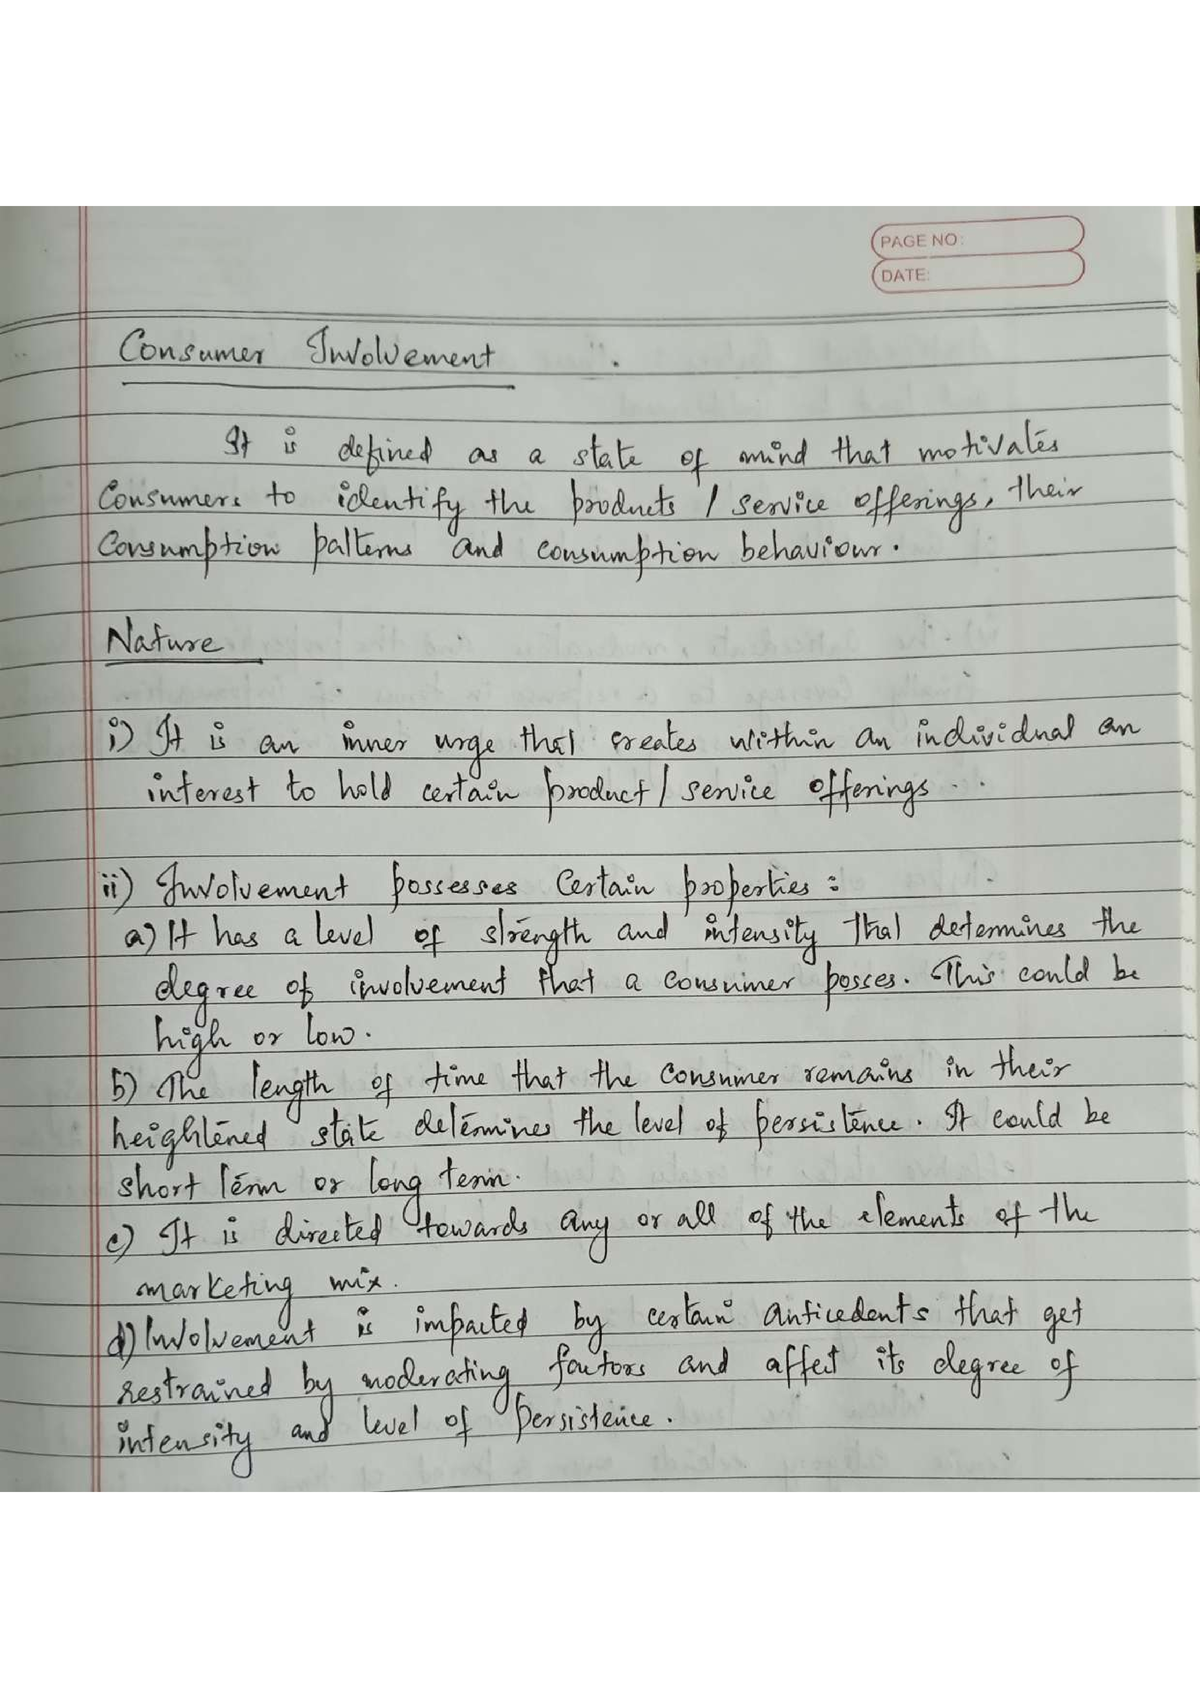 PAGE NO:
DATE:
Consumer Involvement
It is defined as a state of mind that motivates
Consumers to identify the products / service offerings, their
Consumption patterns and consumption behaviour.
Nature
i) It is an inner urge that creates within an individual an
interest to hold certain product / service offerings.
ii) Involvement possesses Certain properties :
a) It has a level of strength and intensity that determines the
degree of involvement that a consumer posses. This could be
high or low.
b) The length of time that the consumer remains in their
heightened state determines the level of persistence. It could be
short term or long term.
c) It is directed towards any or all of the elements of the
marketing mix.
d) Involvement is impacted by certain anticedents that get
restrained by moderating factors and affect its degree of
intensity and level of persistence.